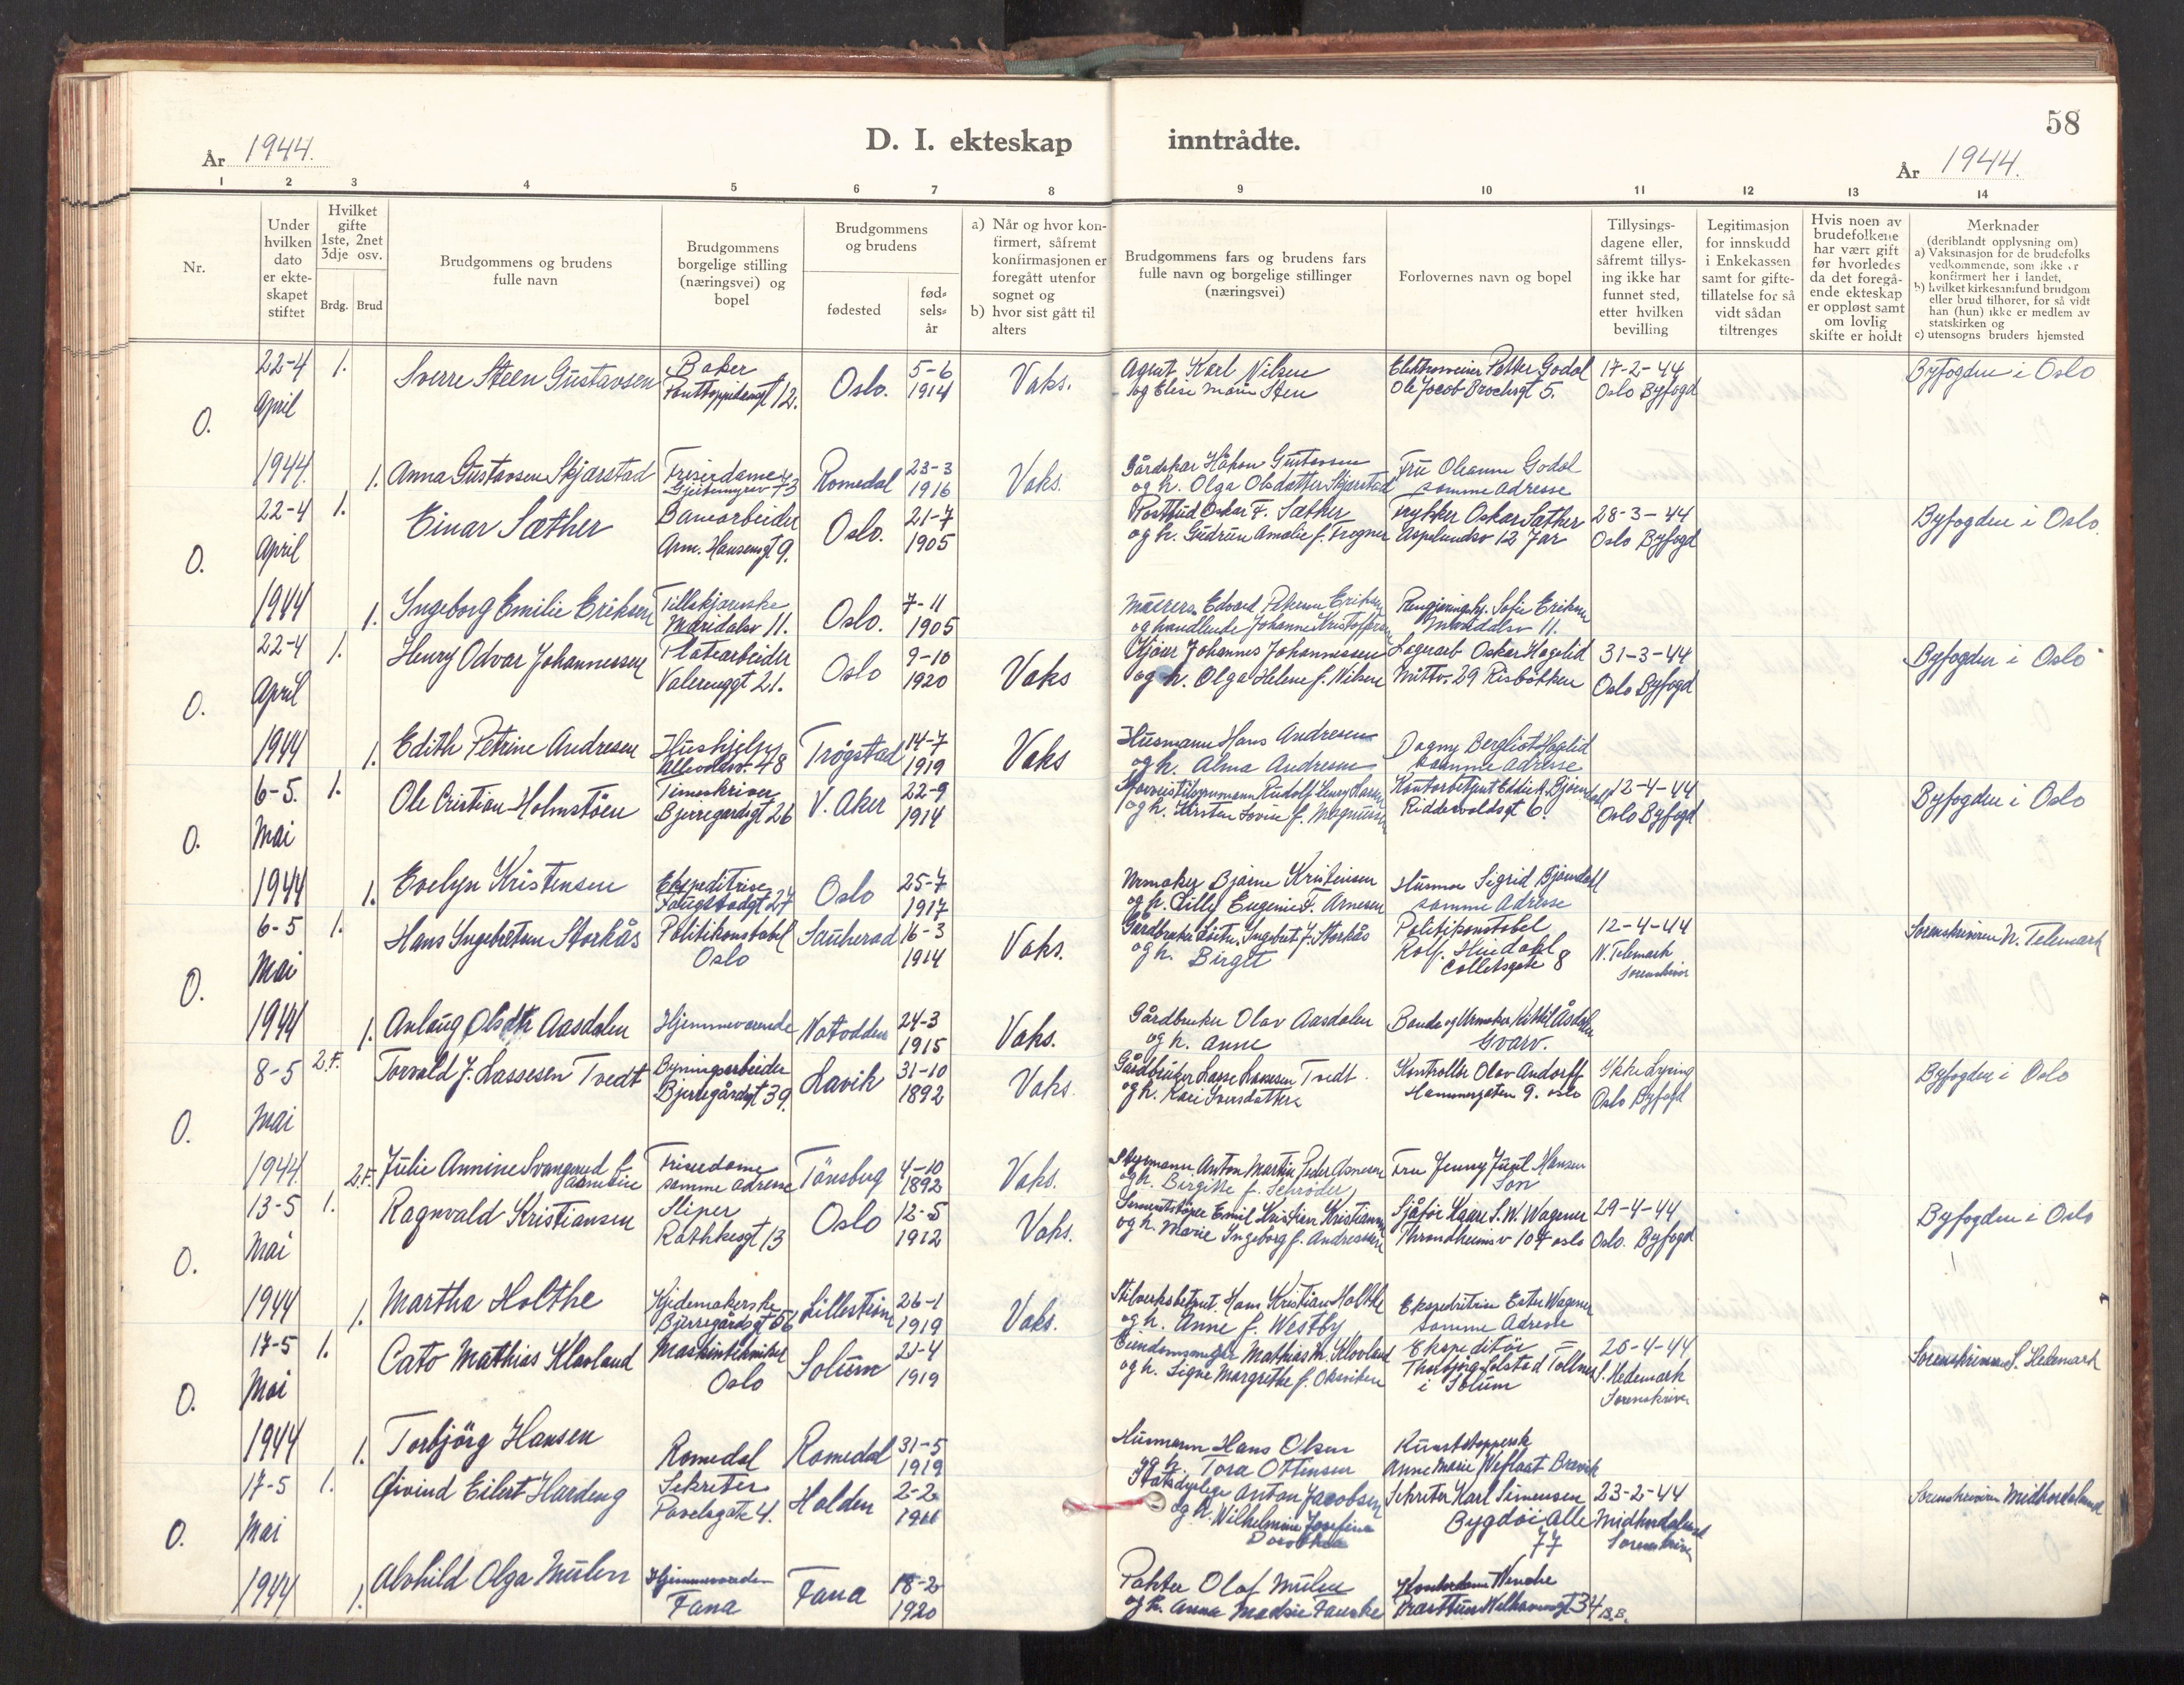 58
D. I. ekteskap inntrådte.
År 1944.
År 1944.
1 2 3 4 5 6 7 8 9 10 11 12 13 14
Nr.
Under hvilken dato er ekte-skapet stiftet
Hvilket gifte 1ste, 2net 3dje osv.
Brdg. Brud
Brudgommens og brudens fulle navn
Brudgommens borgelige stilling (næringsvei) og bopel
Brudgommens og brudens
fødested
fød-sels-år
a) Når og hvor kon-firmert, såfremt konfirmasjonen er foregått utenfor sognet og
b) hvor sist gått til alters
Brudgommens fars og brudens fars fulle navn og borgelige stillinger (næringsvei)
Forlovernes navn og bopel
Tillysings-dagene eller, såfremt tillys-ing ikke har funnet sted, etter hvilken bevilling
Legitimasjon for innskudd i Enkekassen samt for gifte-tillatelse for så vidt sådan tiltrenges
Hvis noen av brudefolkene har vært gift før hvorledes da det foregå-ende ekteskap er oppløst samt om lovlig skifte er holdt
Merknader (deriblandt opplysning om)
a) Vaksinasjon for de brudefolks vedkommende, som ikke er konfirmert her i landet,
b) hvilket kirkesamfund brudgom eller brud tilhører, for så vidt han (hun) ikke er medlem av statskirken og
c) utensogns bruders hjemsted
O. 22-4 April 1. Sverre Steen Gustavsen Baker 12. Oslo. 5-6 1914 Vaks. Karl Nilsen og Elise Marie Sten Petter Godal Ole Jacob Brochsgt 5. 17-2-44 Oslo Byfogd Byfogden i Oslo
1944. 1. Anna Gustavsen Skjærstad Frisørdame 73 Romedal 23-3 1916 Vaks. Håkon Gustavsen og h. Olga Olsdatter Skjærstad Fru Oleanna Godal samme adresse
O. 22-4 April 1. Einar Sæther Banearbeider Arn. Hansensgt 9. Oslo. 21-7 1905 Postbud Oskar F. Sæther og h. Gudrun Amalie f. Frogner Trykker Oskar Sæther Aspelundsv 12 Jar 28-3-44 Oslo Byfogd Byfogden i Oslo.
1944 1. Ingeborg Emilie Eriksen Tilskjærerske Maridalsv 11. Oslo. 7-11 1905 Edvard Petersen Eriksen og handlende Johanne Kristoffersen Rengjøringshj. Sofie Eriksen Maridalsv 11.
O. 22-4 April 1. Henry Odvar Johannessen Platearbeider Valerenggt 21. Oslo 9-10 1920 Vaks Johannes Johannessen og h. Olga Helene f. Nilsen Lagerarb Oskar Haglid 29 Risløkken 31-3-44 Oslo Byfogd Byfogden i Oslo
1944 1. Edith Petrine Andresen Hushjelp 48 Trøgstad 14-7 1919 Vaks Husmann Hans Andresen og h. Alma Andresen Dagny Bergliot Haglid samme adresse
O. 6-5. Mai 1. Ole Cristian Holmstöen Timeskriver Bjerregårdsgt 26 V. Aker 22-9 1914 Rudolf Henry og h. Kirsten Lovise f. Magnussen Riddervoldsgt 6. 12-4-44 Oslo Byfogd Byfogden i Oslo
1944 1. Evelyn Kristensen Ekspeditrise 27 Oslo 25-7 1917 Urmaker Bjarne Kristensen og h. Lilly Eugenie F. Arnesen Husmor Sigrid Bjørndahl samme adresse
O. 6-5 Mai 1. Hans Ingebretsen Storkås Politikonstabel Oslo Sauherad 16-3 1914 Vaks. Gårdbruker Ingebret J. Storkås og h. Birgit Politikonstabel Rolf Colletsgate 8 12-4-44 N. Telemark Sorenskriver Sorenskriveren N. Telemark
1944 1. Anlaug Olsdtr Aasdalen Hjemmeværende Notodden 24-3 1915 Vaks. Gårdbruker Olav Aasdalen og h. Anne Bonde og Urmaker Kittil Åsdalen Gvarv.
O. 8-5 Mai 2.F. Torvald J. Lassesen Tvedt Bygningsarbeider Bjerregårdsgt 39. Lavik 31-10 1892 Vaks. Gårdbruker Lasse Lassesen Tvedt. og h. Kari Iversdatter Kontrollør Olav Andorff Hammergaten 9. oslo Ikke Lysing Oslo Byfogd Byfogden i Oslo
1944. 2.F. Julie Annine Svangerud f. Frisørdame samme adresse Tönsberg 4-10 1892 Vaks. Anton Martin Peder Asmesen og h. Birgitte f. Schrøder Fru Jenny Juul Hansen Son
O. 13-5 Mai 1. Ragnvald Kristiansen Sliper Rathkesgt 13 Oslo 12-5 1912 Vaks. Emil Kristian Kristiansen og h. Marie Ingeborg f. Andressen Sjåför Kaare S. W. Wagener Throndheimsv 107 oslo 29-4-44 Oslo. Byfogd Byfogden i Oslo
1944 1. Martha Holthe Kjedemakerske Bjerregårdsgt 56 Lilleström 26-1 1919 Vaks. Hans Kristian Holthe og h. Anne f. Westby Ekspeditrise Ester Wagener samme Adresse
O. 17-5 Mai 1. Cato Mathias Klovland Maskintekniker Oslo Solum 21-4 1919 Mathias M. Klovland og h. Signe Margrethe f. Ekspeditör Thorbjørg Solstad Tollnes i Solum 20-4-44 S. Hedemark Sorenskriver Sorenskriveren S. Hedemark
1944 1. Torbjörg Hansen Romedal Romedal 31-5 1919 Husmann Hans Olsen og h. Tora Ottinsen Kunststopperske Anne Marie
O. 17-5 Mai 1. Øivind Eilert Hardeng Sekretær Pavelsgate 4. Halden 2-2 Anton Jacobsen og h. Wilhelmine Josefine Dorothea Sekretær Karl Simensen Bygdöi Alle 77 23-2-44 Midhordaland Sorenskriver Sorenskriveren Midhordaland
1944 1. Alvhild Olga Mülen Hjemmeværende Fana Fana 18-2 1920 Olaf Mülen og h. Anna Madsie Fanske Wenche 34 B.B.